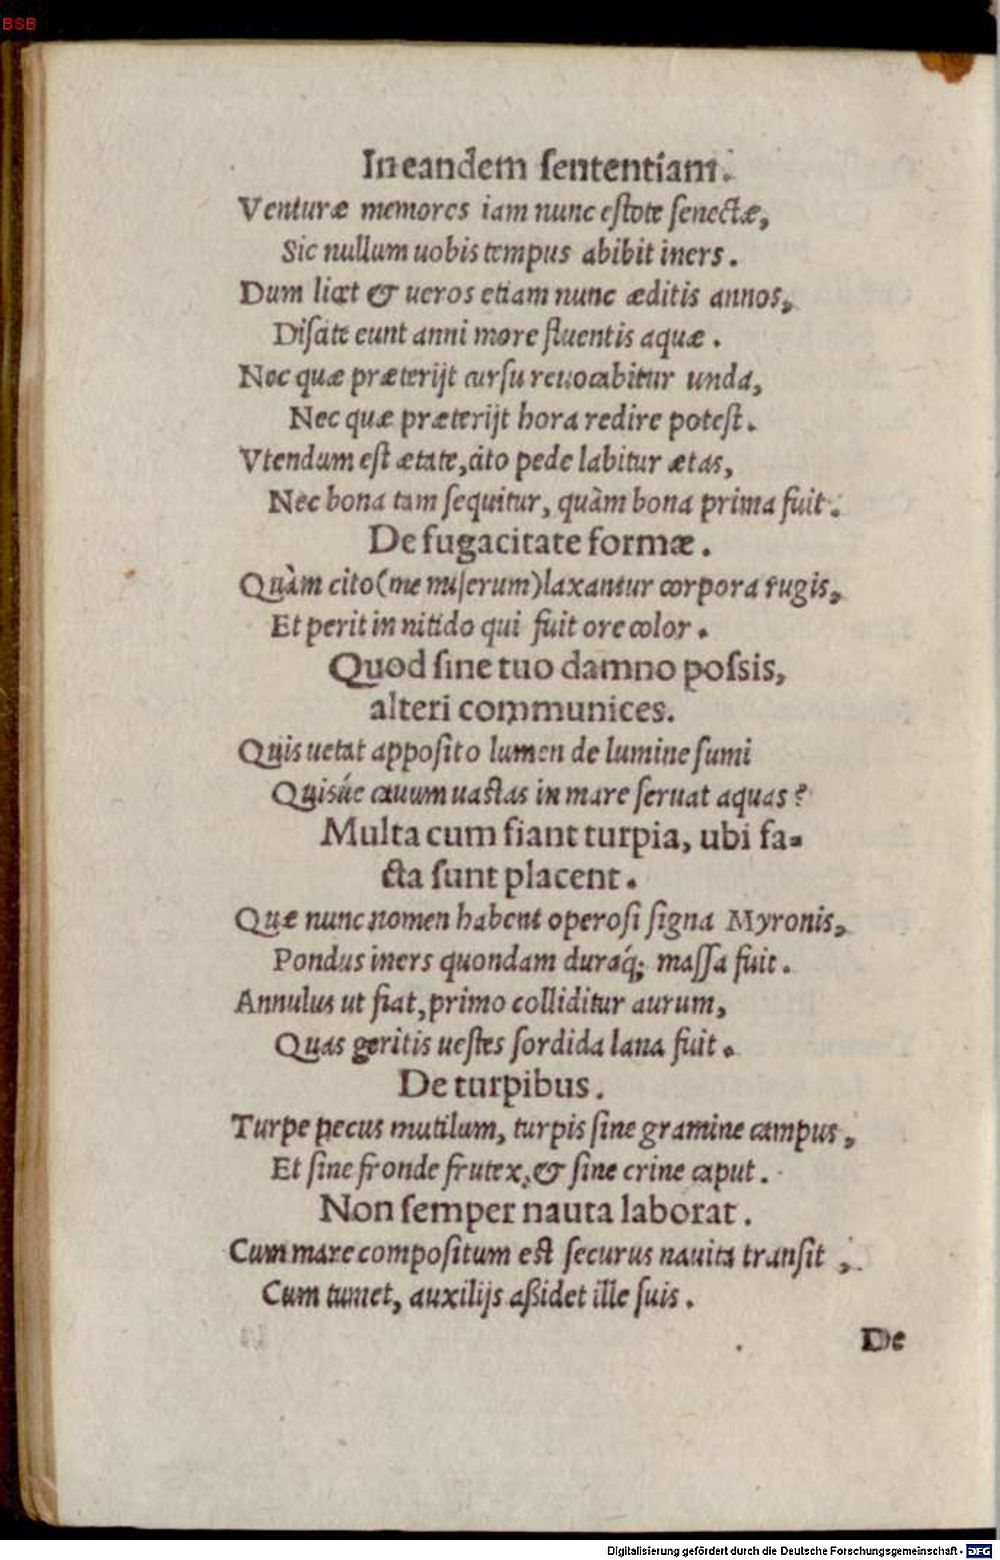 BSB
In eandem ſententiam.
Venturæ memores iam nunc eſtote ſenectæ,
Sic nullum uobis tempus abibit iners.
Dum licet & ueros etiam nunc æditis annos,
Diſcite eunt anni more fluentis aquæ.
Nec quæ præterijt curſu reuocabitur unda,
Nec quæ præterijt hora redire poteſt.
Vtendum eſt ætate, cito pede labitur ætas,
Nec bona tam ſequitur, quàm bona prima fuit.
De fugacitate formæ.
Quàm cito (me miſerum) laxantur corpora rugis,
Et perit in nitido qui fuit ore color.
Quod ſine tuo damno poſsis,
alteri communices.
Quis uetat appoſito lumen de lumine ſumi
Quisúe cauum uastas in mare ſeruat aquas?
Multa cum fiant turpia, ubi fa-
cta ſunt placent.
Quæ nunc nomen habent operoſi ſigna Myronis,
Pondus iners quondam duraq́; maſſa fuit.
Annulus ut fiat, primo colliditur aurum,
Quas geritis ueſtes ſordida lana fuit.
De turpibus.
Turpe pecus mutilum, turpis ſine gramine campus,
Et ſine fronde frutex, & ſine crine caput.
Non ſemper nauta laborat.
Cum mare compoſitum est ſecurus nauita tranſit,
Cum tumet, auxilijs aßidet ille ſuis.
De
Digitalisierung gefördert durch die Deutsche Forschungsgemeinschaft - DFG